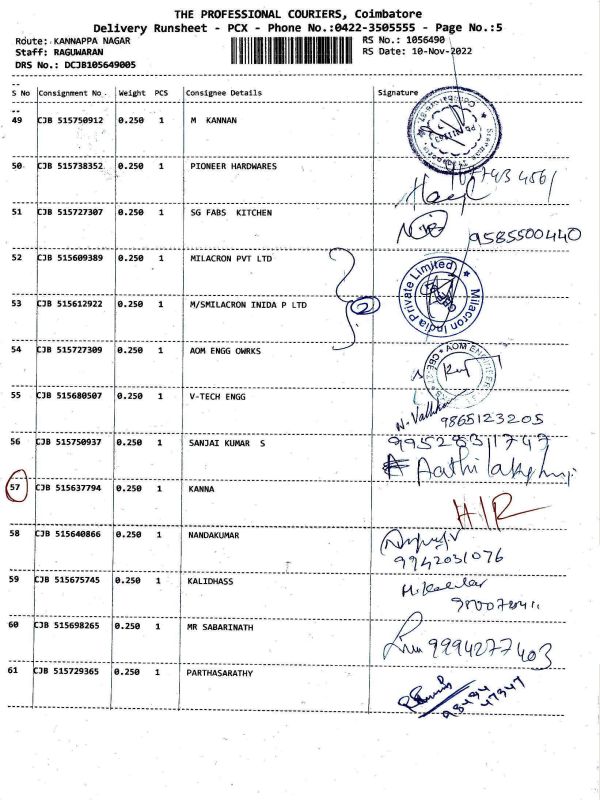 THE PROFESSIONAL COURIERS, Coimbatore
Delivery Runsheet - PCX - Phone No.:0422-3505555 - Page No.:5
Route: KANNAPPA NAGAR RS No.: 1056490
Staff: RAGUWARAN RS Date: 10-Nov-2022
DRS No.: DCJB105649005
S No Consignment No. Weight PCS Consignee Details Signature
49 CJB 515750912 0.250 1 M KANNAN
50 CJB 515738352 0.250 1 PIONEER HARDWARES
51 CJB 515727307 0.250 1 SG FABS KITCHEN
9585500440
52 CJB 515609389 0.250 1 MILACRON PVT LTD
Milacron India Private Limited
53 CJB 515612922 0.250 1 M/SMILACRON INIDA P LTD 2
54 CJB 515727309 0.250 1 AOM ENGG OWRKS
AOM ENGINEER
55 CJB 515680507 0.250 1 V-TECH ENGG
9865123205
56 CJB 515750937 0.250 1 SANJAI KUMAR S
9952831747
57 CJB 515637794 0.250 1 KANNA H/R
58 CJB 515640866 0.250 1 NANDAKUMAR
9942031076
59 CJB 515675745 0.250 1 KALIDHASS
60 CJB 515698265 0.250 1 MR SABARINATH
9994277403
61 CJB 515729365 0.250 1 PARTHASARATHY
98494
47347